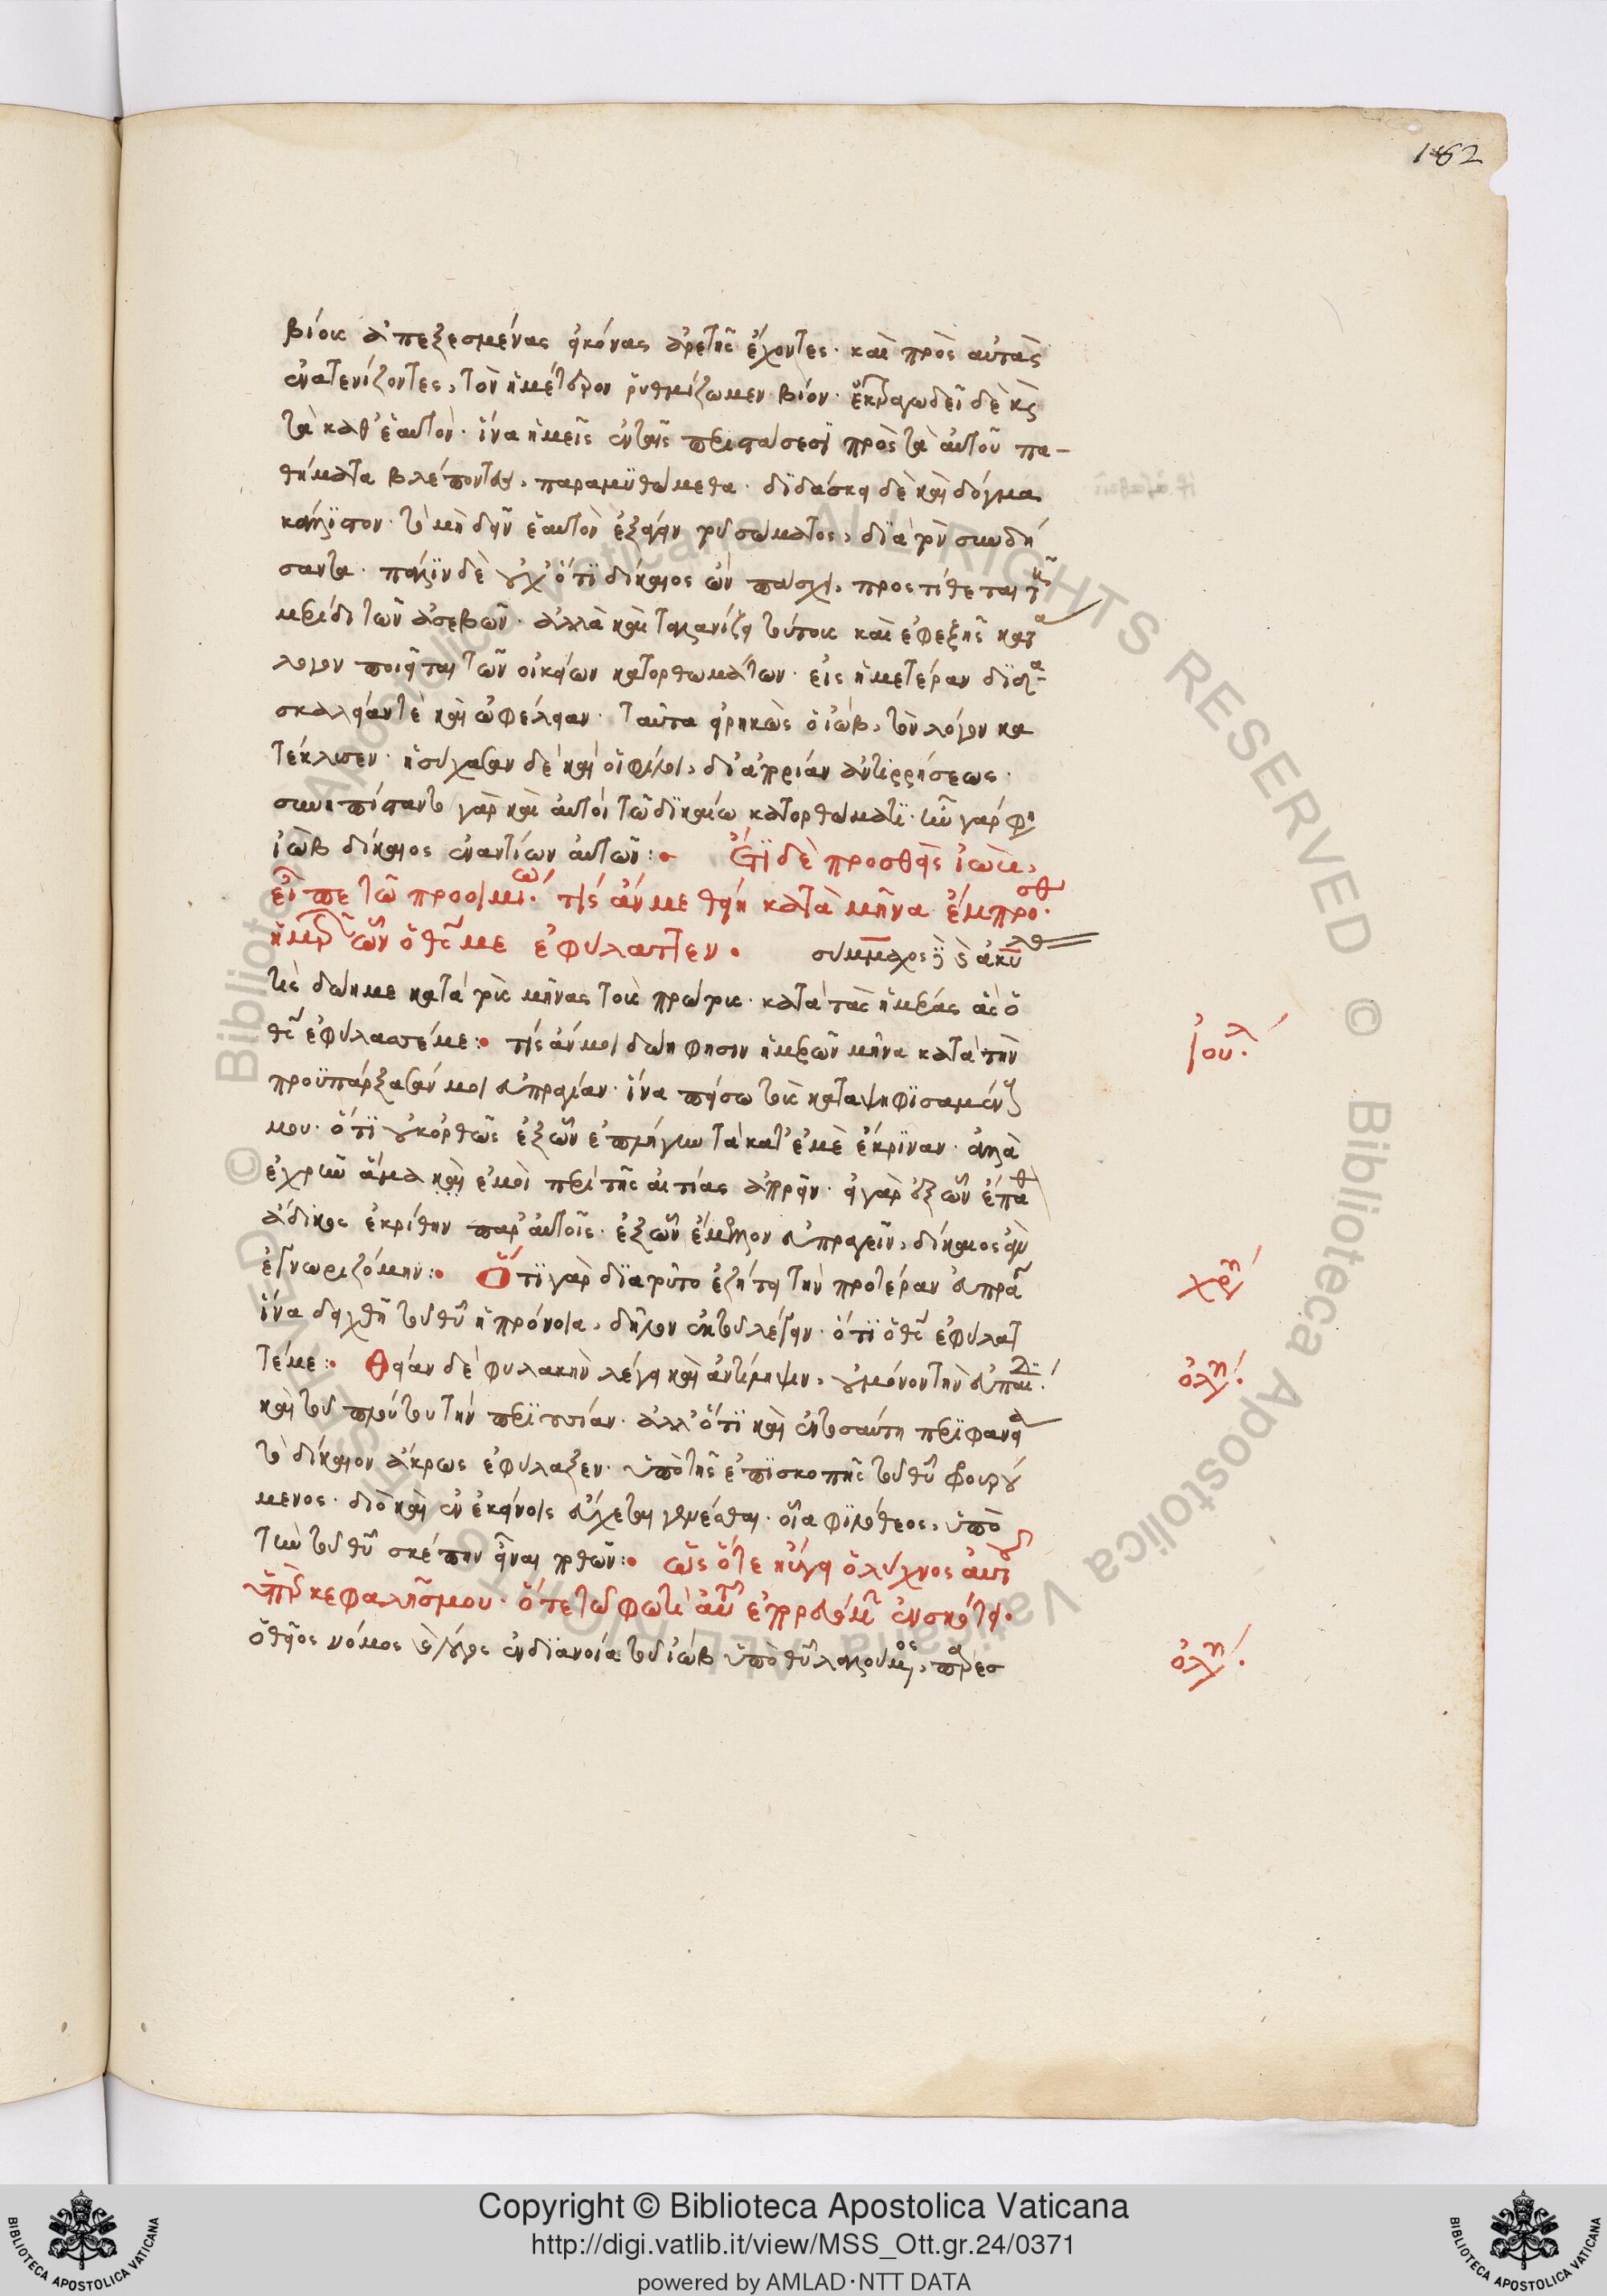 162
βίοις ἀπεξεσμένας εἰκόνας ἀρετῆς ἔχοντες· καὶ πρὸς αὐτὰς
ἐνατενίζοντες, τὸν ἡμέτερον ῥυθμίζωμεν βίον· ἐκτραγωδεῖ δὲ καὶ
τὰ καθ' ἑαυτὸν· ἵνα ἡμεῖς ἐν ταῖς περιστάσεσι πρὸς τὰ αὐτοῦ πα-
θήματα βλέποντες, παραμυθώμεθα· διδάσκει δὲ καὶ δόγμα
κάλλιστον· τὸ μὴ δεῖν ἑαυτὸν ἐξάγειν τοῦ σώματος, διὰ τὸν συνδή
σαντα· πάλιν δὲ οὐχ ὅτι δίκαιος ὢν πάσχει, προστίθεται τῆ
μερίδι τῶν ἀσεβῶν· ἀλλὰ καὶ ταλανίζει τούτους καὶ ἐφεξῆς κατὰ
λογον ποιεῖται τῶν οἰκείων κατορθωμάτων· εἰς ἡμετέραν διδα
σκαλείαν τὲ καὶ ὠφέλειαν· ταῦτα εἰρηκὼς ὁ ἰὼβ, τὸν λόγον κα
τέκλεισεν· ἡσύχασαν δὲ καὶ οἱ φίλοι, δι' ἀπορίαν ἀντιρρήσεως·
συνεπίσταντο γὰρ καὶ αὐτοὶ τῶ δικαίω κατορθώματι· ἦν γάρ φησιν
ἰὼβ δίκαιος ἐναντίων αὐτῶν:· Ἔτι δὲ προσθεὶς ἰὼβ,
εἶπε τῶ προοιμίω· τίς ἄν με θείη κατὰ μῆνα ἔμπροσθεν
ἡμερῶν ὧν ὁ θεός με ἐφύλαττεν· συμμαχος
τίς δώη με κατὰ τοὺς μῆνας τοὺς πρώτους· κατὰ τὰς ἡμέρας ἃς ὁ
θεὸς ἐφύλασσέ με:· τίς ἄν μοι δώη φησιν ἡμερῶν μῆνα κατὰ τὴν
προϋπάρξασάν μοι εὐπραγίαν· ἵνα πείσω τοὺς καταψηφισαμένους
μου· ὅτι οὐκ ὀρθῶς ἐξ ὧν ἐπλήγην τὰ κατ' ἐμὲ ἔκριναν· ἀλλὰ
ἐχρῆν ἅμα καὶ ἐμοὶ περὶ τῆς αἰτίας ἀπορεῖν· εἰ γὰρ ἐξ ὧν ἔπαθον
ἄδικος ἐκρίθην παρ' αὐτοῖς· ἐξ ὧν ἔμελλον εὐπραγεῖν, δίκαιος ἂν
ἐγνωριζόμην:· Ὅτι γὰρ διὰ τοῦτο ἐζήτει τὴν προτέραν εὐπραγίαν
ἵνα δειχθῆ τοῦ θεοῦ ἡ πρόνοια, δῆλον ἐκ τοῦ λέγειν· ὅτι ὁ θεὸς ἐφύλατ
τέ με:· Θείαν δὲ φυλακὴν λέγει καὶ ἀντίληψιν, οὐ μόνον τὴν εὐπαιδίαν
καὶ τοῦ πλούτου τὴν περιουσίαν· ἀλλ' ὅτι καὶ ἐν τοσαύτη περιφανεία
τὸ δίκαιον ἄκρως ἐφύλαξεν· ὑπὸ τῆς ἐπισκοπῆς τοῦ θεοῦ φρουρού
μενος· διὸ καὶ ἐν ἐκείνοις εὔχεται γενέσθαι· οἷα φιλόθεος, ὑπὸ
τὴν τοῦ θεοῦ σκέπην εἶναι ποθῶν:· ὡς ὅτε ηὔγει ὁ λύχνος αὐτοῦ
ὑπὲρ κεφαλῆς μου· ὅτε τῶ φωτὶ αὐτοῦ ἐπορευόμην ἐν σκότει·
ὁ θεῖος νόμος
Ἰουλ
χρυ
ὀλυ
ὀλυ
© Biblioteca Apostolica Vaticana ALL RIGHTS RESERVED © Biblioteca Apostolica Vaticana ALL RIGHTS RESERVED
BIBLIOTECA APOSTOLICA VATICANA
Copyright © Biblioteca Apostolica Vaticana
http://digi.vatlib.it/view/MSS_Ott.gr.24/0371
powered by AMLAD·NTT DATA
BIBLIOTECA APOSTOLICA VATICANA